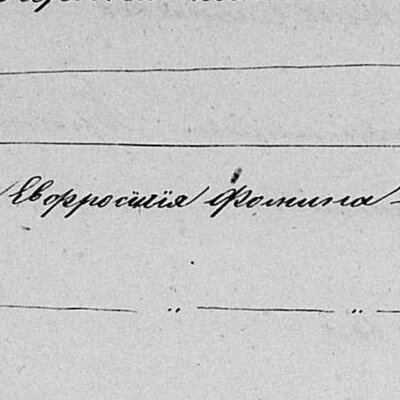 Евфросинія Фомина
" "